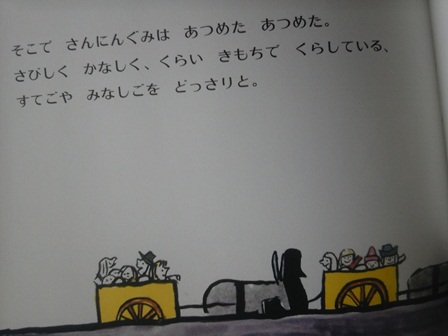 そこで さんにんぐみは あつめた あつめた。
さびしく かなしく、くらい きもちで くらしている、
すてごや みなしごを どっさりと。